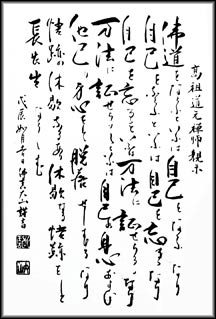 高祖道元禅師親示
佛道をならふといふは自己をならふなり
自己をならふといふは自己を忘るゝなり
自己を忘るゝといふは万法に証せらるゝなり
万法に証せらるゝといふは自己の身心および
他己の身心をして脱落せしむるなり
悟跡の休歇なるあり休歇なる悟跡を
長々出
ならしむ
戊辰 如月